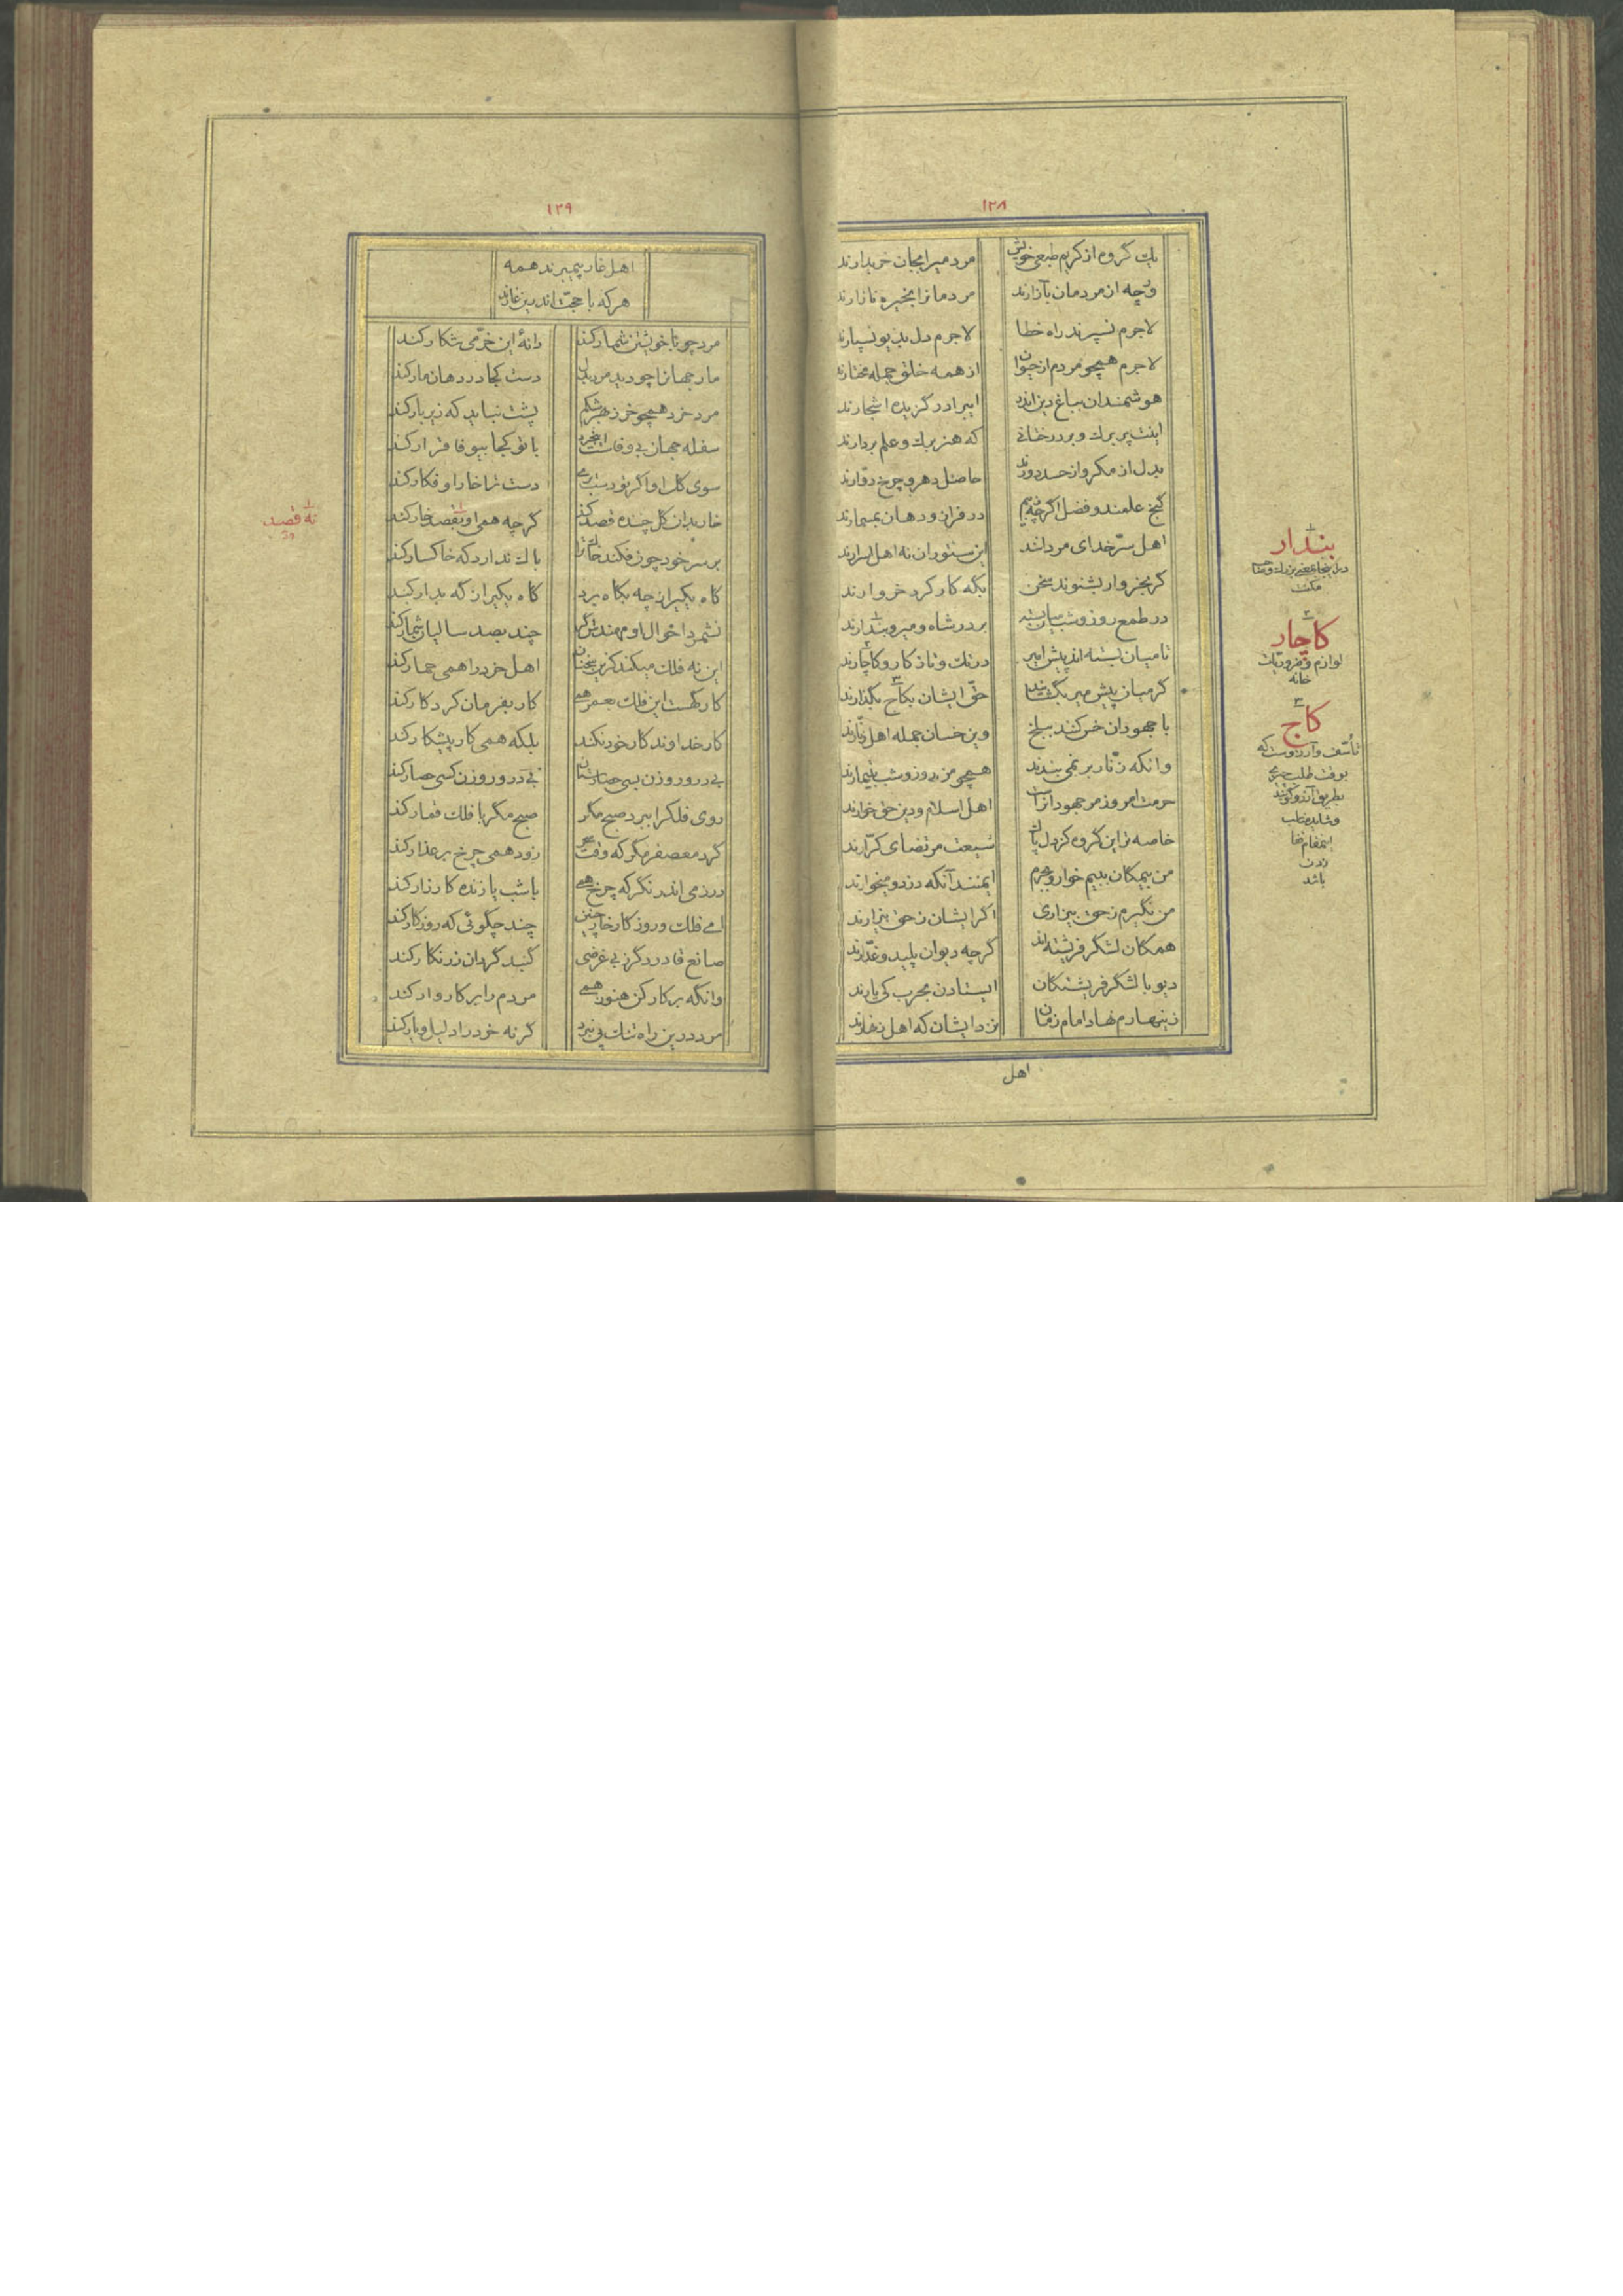 ١٢٨
یك گروه از کریم طبعی خویش
مردمیرا بجان خریدارند
ورچه از مردمان بآزارند
مردمانرا بخیره نازارند
لاجرم نسپرند راه خطا
لاجرم دل بدیو نسپارند
لاجرم همچو مردم از حیوان
از همه خلق جمله مختارند
هوشمندان بباغ دین اندر
ایبرادر گزیده اشجارند
اینت پر برك و بر درختانی
که هنر برك و علم بردارند
بدل از مکر و از حسد دورند
حاصل دهر و چرخ دوّارند
گنج علمند و فضل اگرچه ز بیم
در فراز و دهان بمسمارند
اهل سرّ خدای مردانند
این ستوران نه اهل اسرارند
گر بخروار بشنوند سخن
بگه کارکرد خروارند
در طمع روز و شب میان بسته
بر در شاه و میر و بندارند
تا میان بسته اند پیش امیر
در تك و تاز کار و کاچارند
گر میان پیش میر بگشایند
حقّ ایشان بکاج بگذارند
با جهودان خس کنند ببلخ
وین خسان جمله اهل زنّارند
وانکه زنّار بر نمی بندند
همچو من روز و شب بتیمارند
حرمت امروز مر جهودانراست
اهل اسلام و دین حق خوارند
خاصه مر این گروه کز دل پاك
شیعت مرتضای کرّارند
من بیمگان ببیم خوار و بجرم
ایمنند آنکه دزد و میخوارند
من نگیرم ز حق بیزاری
اگر ایشان ز حق بیزارند
همگان لشگر فریشته اند
گرچه دیوان پلید و غدّارند
دیو با لشگر فریشتگان
ایستادن بحرب کی یارند
زینهارم نهاد امام زمان
نزد ایشان که اهل زنهارند
اهل
١
بندار
مکنت
٢
کاچار
لوازم و ضروریّات
خانه
٣
کاج
تأسّف و آرزوست که
بوقت طلب چیزی
بطریق آرزو گویند
زدن
باشد
١٢٩
اهل غار پیمبرند همه
هرکه با حجّت اندرین غارند
مرد چو با خویشتن شمار کند
دانهٔ این خرّمی شکار کند
مار جهانرا چو دید مرد بدل
دست کجا در دهان مار کند
مرد خرد همچو خر ز بهر شکم
پشت نباید که زیر بار کند
سفله جهان بی وفاست ایبخرد
با تو کجا بیوفا قرار کند
سوی گل او اگر تو دست بری
دست ترا خار او فگار کند
خار بدان گل چننده قصد کند
گرچه همی او بقصد خار کند
بر سر خود چون فکند خاك ترا
باك ندارد که خاکسار کند
گاه بگیران چه بگاه برد
گاه بگیران که بدار کند
نشمرد احوال او مهندس اگر
چند بصد سالیان شمار کند
این نه فلك میکند کزین سخنان
اهل خرد را همی حمار کند
کارگهست این فلك بعمر همی
کار بفرمان کردگار کند
کار خداوند کار خود نکند
بلکه همی کار پیشکار کند
بی در و روزن بسی حصارستان
بی در و روزن کسی حصار کند
روی فلکرا ببرد صبح مگر
صبح مگر با فلك قمار کند
گرد معصفر مگر که وقت سحر
زود همی چرخ بر عذار کند
در زمی اندر نگر که چرخ همی
با شب یازنده کارزار کند
ای فلك و روزگار خار چنین
چند چگوئی که روزگار کند
صانع قادر دگر ز بی غرضی
گنبد گردان زرنگار کند
وانگه بر کارکن هنوز همی
مردم را بر کار وار کند
مرد درین راه تنك پی نبرد
گرنه خرد را دلیل و یار کند
١
نه قصد